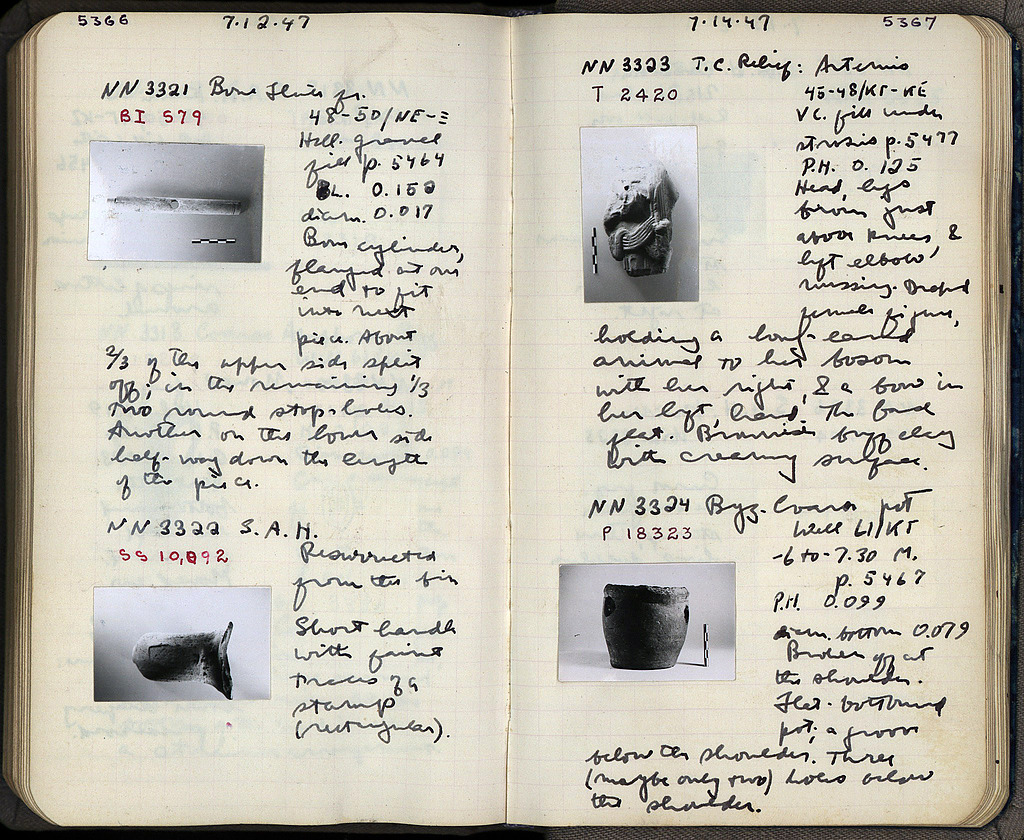 5366 7.12.47
NN 3321 Bone Flute fr.
BI 579
48-50/NE-Ξ
Hell. gravel
fill p. 5464
L. 0.152
diam. 0.017
Bone cylinder,
flanged at one
end to fit
into next
piece. About
2/3 of the upper side split
off; in the remaining 1/3
two round stops holes.
Another on the lower side
half-way down the length
of the piece.
NN 3322 S.A.H.
SS 10,892
Resurrected
from the bin
Short handle
with faint
traces of a
stamp
(rectangular).
7.14.47 5367
NN 3323 T.C. Relief: Artemis
T 2420
45-48/ΚΓ-ΚΕ
VC. fill under
strosis p. 5477
P.H. 0.125
Head, legs
from just
above knees, &
left elbow,
missing. Draped
female figure,
holding a long-eared
animal to her bosom
with her right, & a bow in
her left, hand. The back
flat. Brownish buff clay
with creamy surface.
NN 3324 Byz. Coarse pot
P 18323
Well 61/ΚΓ
-6 to -7.30 M.
p. 5467
P.H. 0.099
diam. bottom 0.079
Broken off at
the shoulder.
Flat-bottomed
pot; a groove
below the shoulder. Three
(maybe only two) holes below
the shoulder.